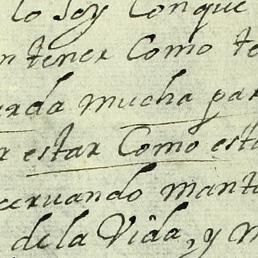 lo soy Con que
ntener Como te
arda mucha par
r estar Como esta
ceruando manta
de la Vida, y m